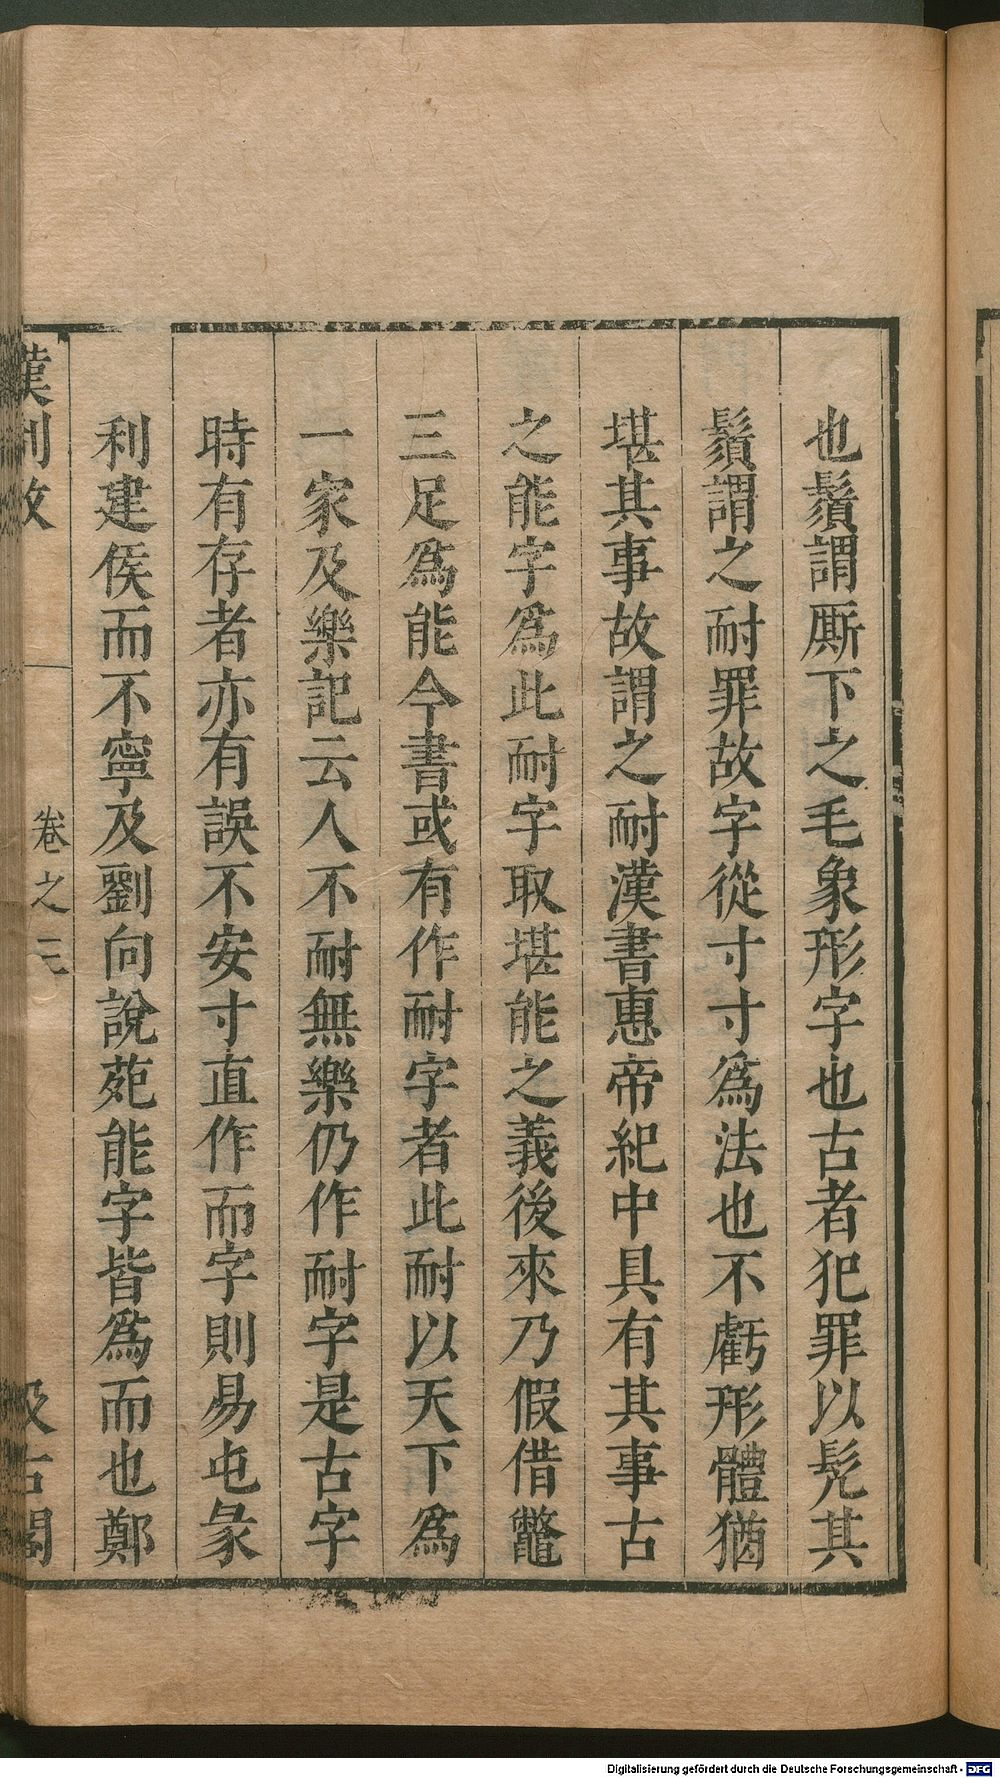 也鬚謂厮下之毛象形字也古者犯罪以髠其
鬚謂之耐罪故字從寸寸爲法也不虧形體猶
堪其事故謂之耐漢書惠帝紀中具有其事古
之能字爲此耐字取堪能之義後來乃假借鼈
三足爲能今書或有作耐字者此耐以天下爲
一家及樂記云人不耐無樂仍作耐字是古字
時有存者亦有誤不安寸直作而字則易屯彖
利建侯而不寧及劉向說苑能字皆爲而也鄭
漢刊攷
卷之
汲古閣
Digitalisierung gefördert durch die Deutsche Forschungsgemeinschaft - DFG